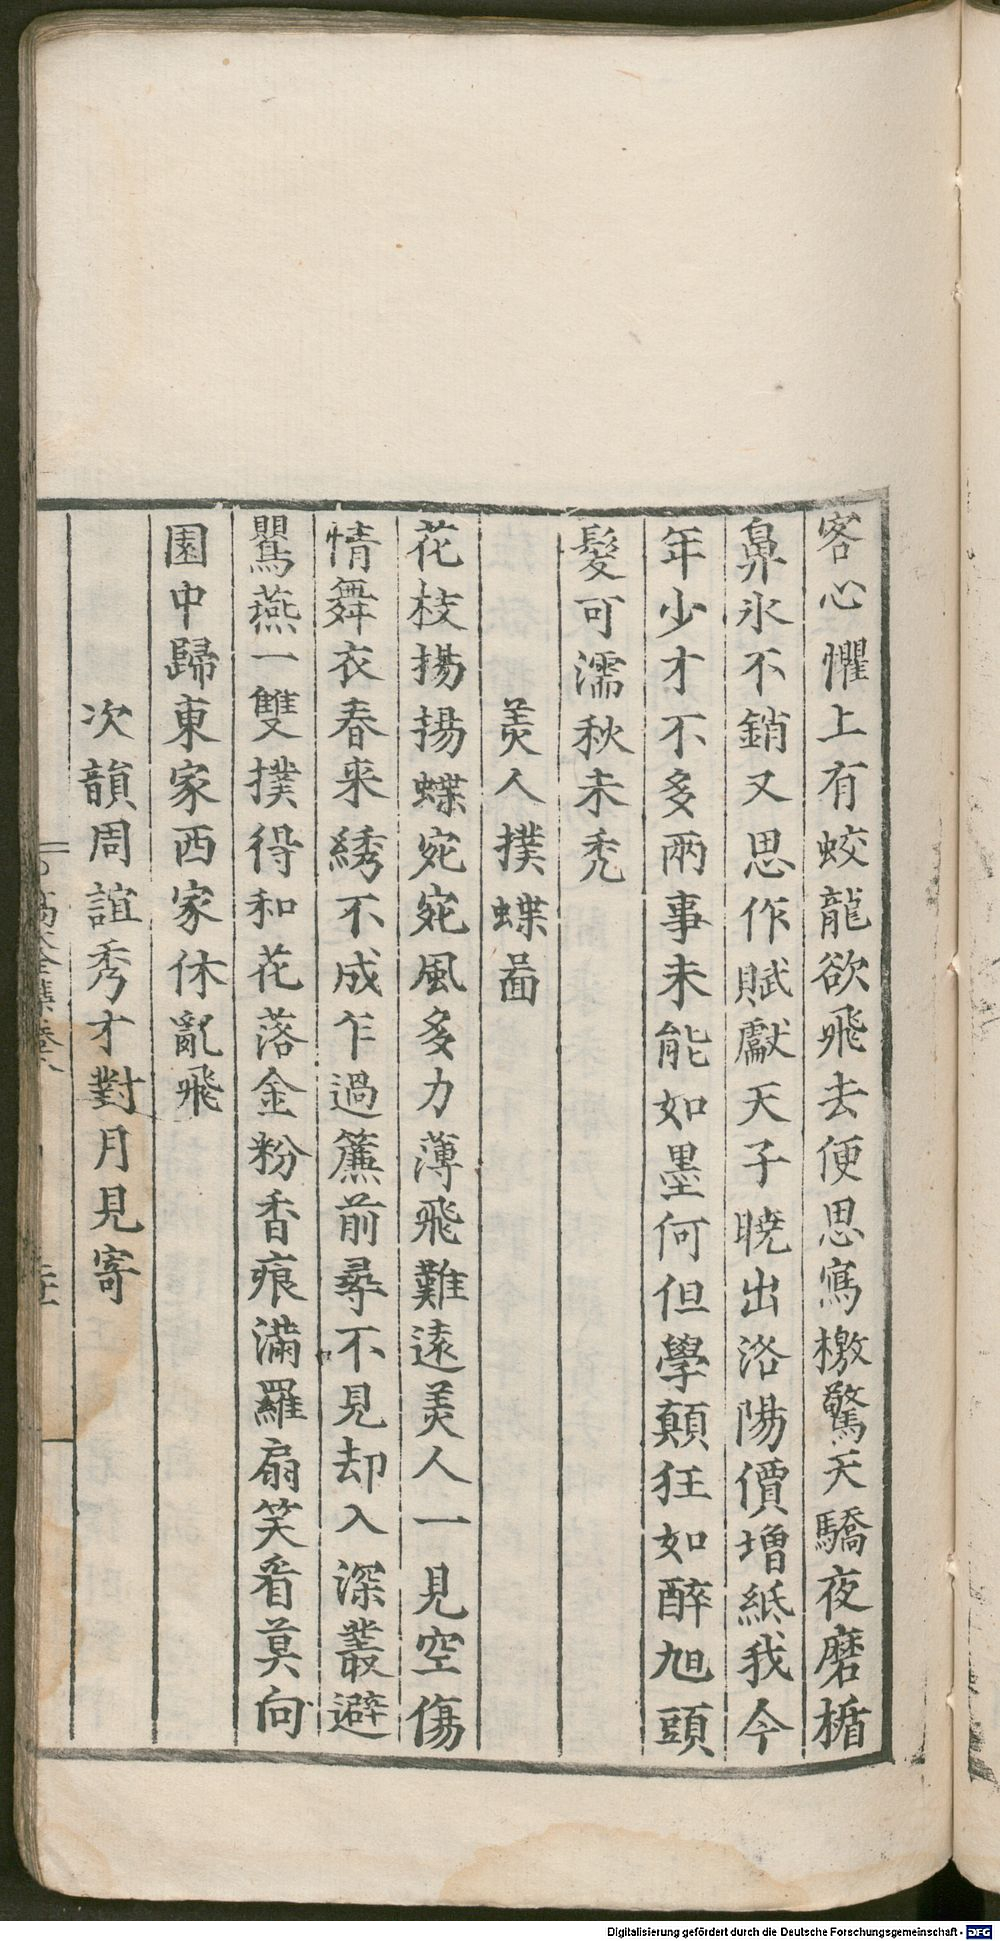 客心懼上有蛟龍欲飛去便思寫檄驚天驕夜磨楯
鼻氷不銷又思作賦獻天子曉出洛陽價增紙我今
年少才不多兩事未能如墨何但學顛狂如醉旭頭
髮可濡秋未禿
美人撲蝶啚
花枝揚揚蝶宛宛風多力薄飛難遠美人一見空傷
情舞衣春來綉不成乍過簾前尋不見却入深叢避
鸎燕一雙撲得和花落金粉香痕滿羅扇笑看莫向
園中歸東家西家休亂飛
次韻周誼秀才對月見寄
Digitalisierung gefördert durch die Deutsche Forschungsgemeinschaft - DFG